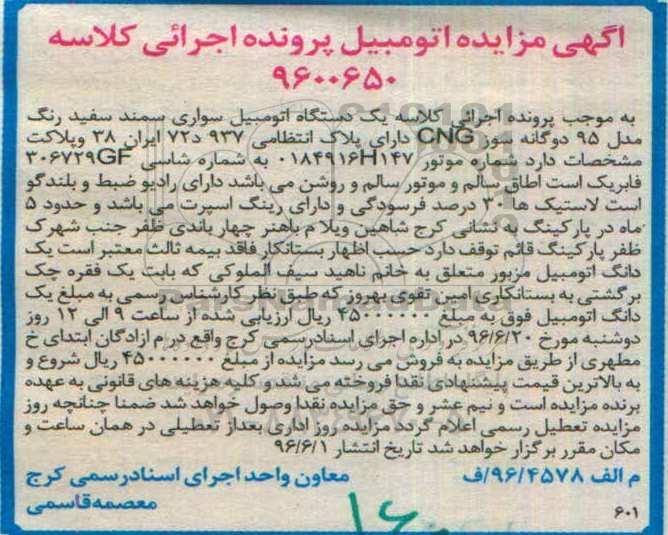 اگهی مزایده اتومبیل پرونده اجرائی کلاسه
۹۶۰۰۶۵۰
به موجب پرونده اجرائی کلاسه یک دستگاه اتومبیل سواری سمند سفید رنگ
مدل ۹۵ دوگانه سوز CNG دارای پلاک انتظامی ۹۳۷ د۷۲ ایران ۳۸ وپلاکت
مشخصات دارد شماره موتور ۰۱۸۴۹۱۶H۱۴۷ به شماره شاسی ۳۰۶۷۲۹GF
فابریک است اطاق سالم و موتور سالم و روشن می باشد دارای رادیو ضبط و بلندگو
است لاستیک ها ۳۰ درصد فرسودگی و دارای رینگ اسپرت می باشد و حدود ۵
ماه در پارکینگ به نشانی کرج شاهین ویلا م باهنر چهار باندی ظفر جنب شهرک
ظفر پارکینگ قائم توقف دارد حسب اظهار بستانکار فاقد بیمه ثالث معتبر است یک
دانگ اتومبیل مزبور متعلق به خانم ناهید سیف الملوکی که بابت یک فقره چک
برگشتی به بستانکاری امین تقوی بهروز که طبق نظر کارشناس رسمی به مبلغ یک
دانگ اتومبیل فوق به مبلغ ۴۵۰۰۰۰۰۰ ریال ارزیابی شده از ساعت ۹ الی ۱۲ روز
دوشنبه مورخ ۹۶/۶/۲۰ در اداره اجرای اسنادرسمی کرج واقع در م ازادگان ابتدای خ
مطهری از طریق مزایده به فروش می رسد مزایده از مبلغ ۴۵۰۰۰۰۰۰ ریال شروع و
به بالاترین قیمت پیشنهادی نقدا فروخته می شد و کلیه هزینه های قانونی به عهده
برنده مزایده است و نیم عشر و حق مزایده نقدا وصول خواهد شد ضمنا چنانچه روز
مزایده تعطیل رسمی اعلام گردد مزایده روز اداری بعداز تعطیلی در همان ساعت و
مکان مقرر برگزار خواهد شد تاریخ انتشار ۹۶/۶/۱
م الف ۹۶/۴۵۷۸/ف
معاون واحد اجرای اسنادرسمی کرج
معصمه قاسمی
۶۰۱